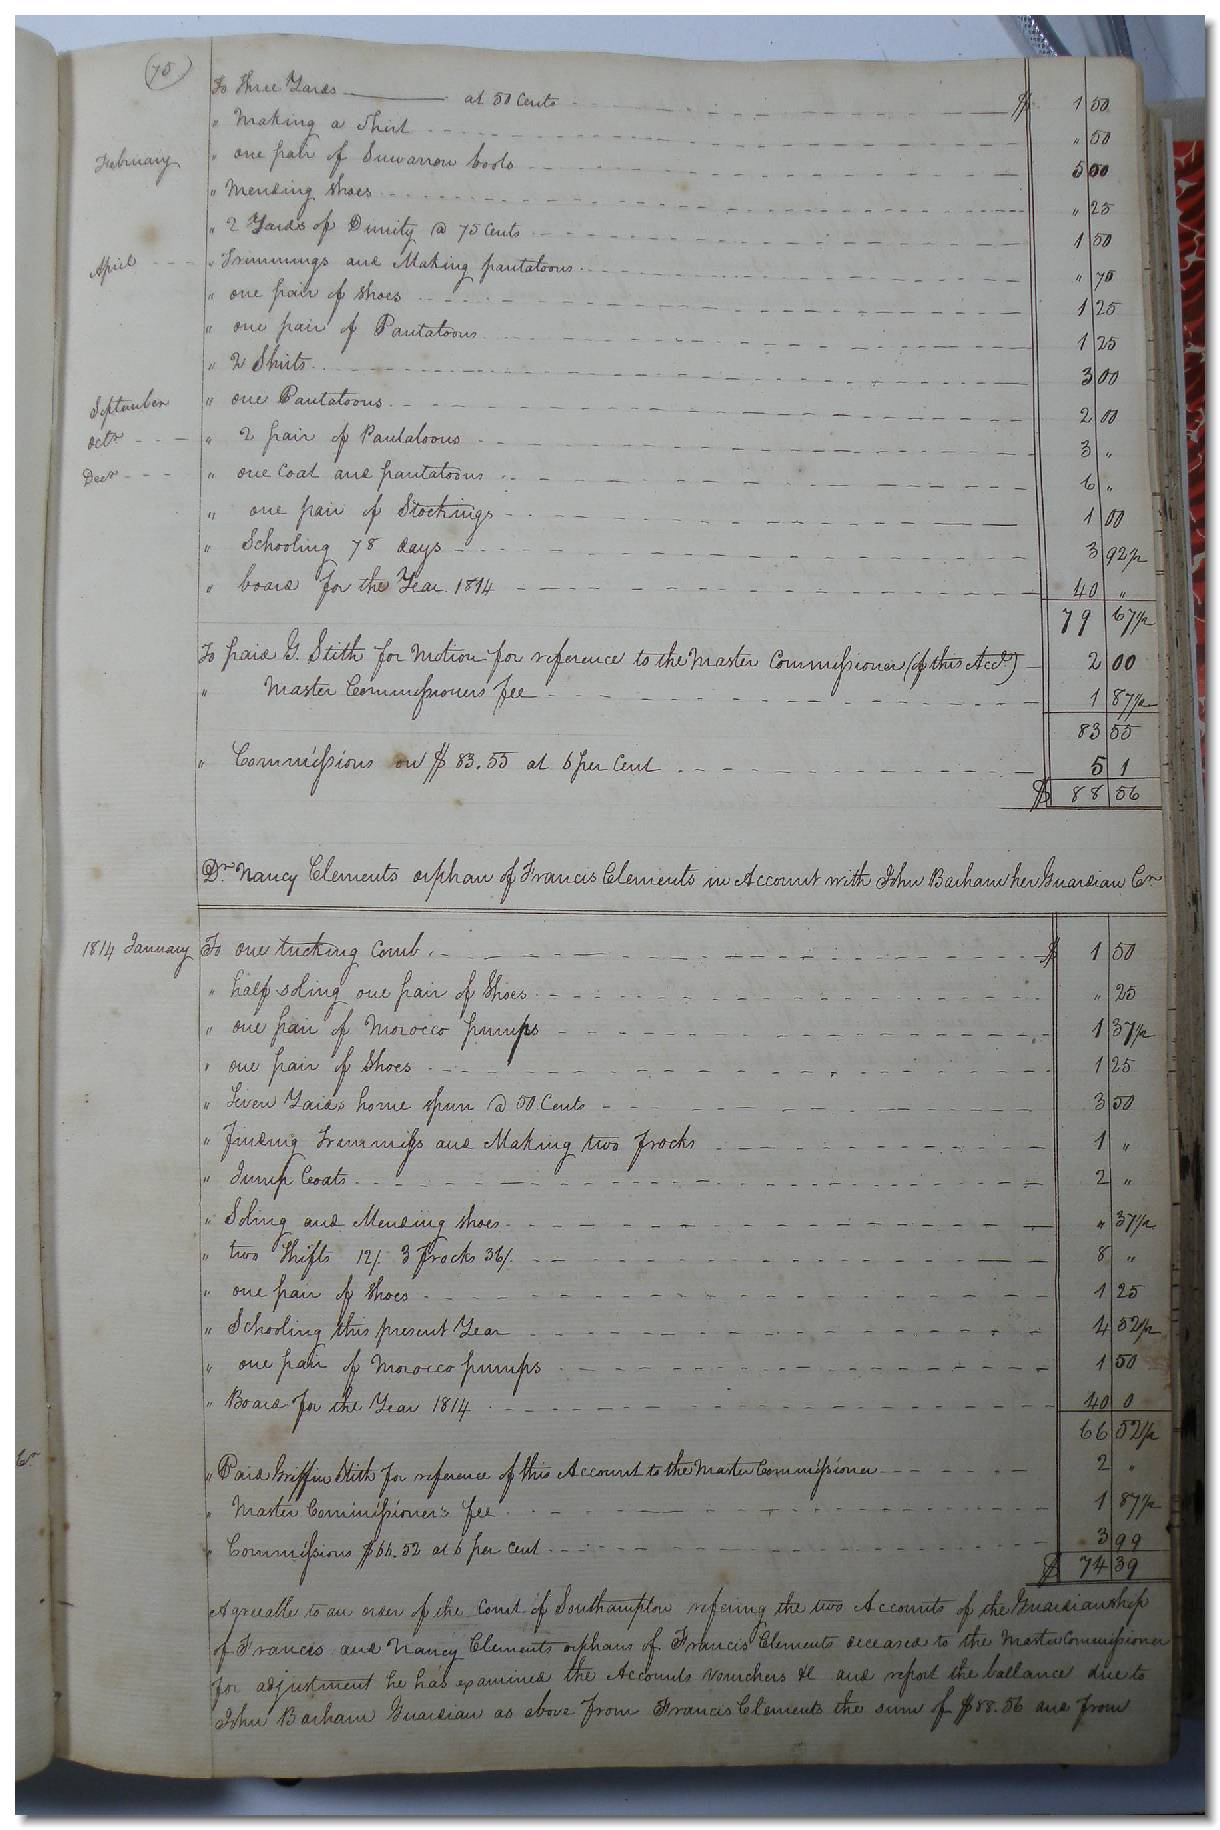 (75)
To three Yards ——— at 50 Cents $ 1 50
" Making a Shirt " 50
February " one pair of Suwarrow boots 5 50
" Mending Shoes " 25
" 2 Yards of Dimity @ 75 Cents 1 50
April " Trimmings and Making pantatoons " 75
" one pair of Shoes 1 25
" one pair of Pantatoons 1 25
" 2 Shirts 3 00
September " one Pantatoons 2 00
Octr " 2 pair of Pantaloons 3 "
Decr " one Coat and pantatoons 6 "
" one pair of Stockings 1 00
" Schooling 78 days 3 92½
" board for the Year 1814 40 "
79 67½
To paid G. Stith for Motion for reference to the Master Commissioner (of this Acct) 2 00
" Master Commissioners fee 1 87½
83 55
" Commissions on $83.55 at 6 per Cent 5 1
$ 88 56
Dr. Nancy Clements orphan of Francis Clements in Account with John Barham her Guardian Cr
1814 January To one tucking Comb $ 1 50
" half soling one pair of Shoes " 25
" one pair of Morocco pumps 1 37½
" one pair of Shoes 1 25
" Seven Yards home spun @ 50 Cents 3 50
" finding Trimmigs and Making two frocks 1 "
" Jump Coats 2 "
" Soling and Mending Shoes " 37½
" two Shifts 12/. 3 frocks 36/. 8 "
" one pair of Shoes 1 25
" Schooling this present Year 4 52½
" one pair of Morocco pumps 1 50
" Board for the Year 1814 40 0
66 52½
" Paid Griffin Stith for reference of this Account to the Master Commissioner 2 "
" Master Commissioner's fee 1 87½
" Commissions $66.52 at 6 per Cent 3 99
$ 74 39
Agreeable to an order of the Court of Southampton refering the two Accounts of the Guardianship
of Francis and Nancy Clements orphans of Francis Clements deceased to the Master Commissioner
for adjustment he has examined the Accounts Vouchers &c and report the ballance due to
John Barham Guardian as above from Francis Clements the sum of $88.56 and from
Cr